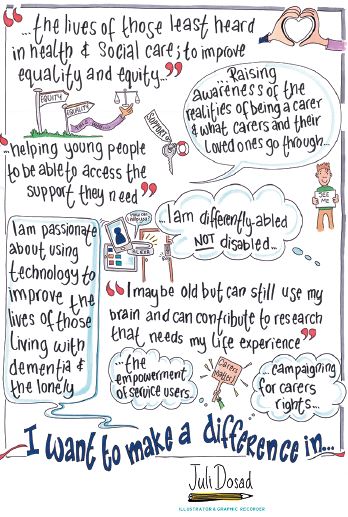 "...the lives of those least heard
in health & Social care; to improve
equality and equity..."
EQUITY
EQUALITY
SUPPORT
...Raising
awareness of the
realities of being a carer
& what carers and their
loved ones go through...
...helping young people
to be able to access the
support they need"
SEE
ME
I am passionate
about using
technology to
improve the
lives of those
living with
dementia &
the lonely
ALEXA
...I am differently-abled
NOT disabled...
"I may be old but can still use my
brain and can contribute to research
that needs my life experience"
...the
empowerment
of service users...
Carers
Matter!
...campaigning
for carers
rights...
I want to make a difference in...
Juli Dosad
ILLUSTRATOR & GRAPHIC RECORDER